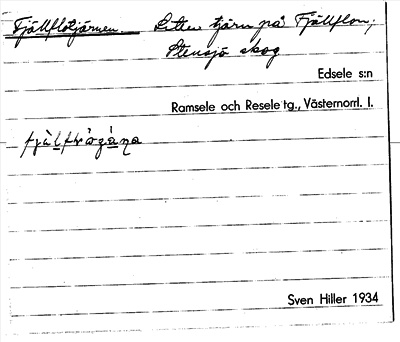 Fjällflotjärnen. Liten tjärn på Fjällflon,
Stensjö skog
Edsele s:n
Ramsele och Resele tg., Västernorrl. l.
Sven Hiller 1934